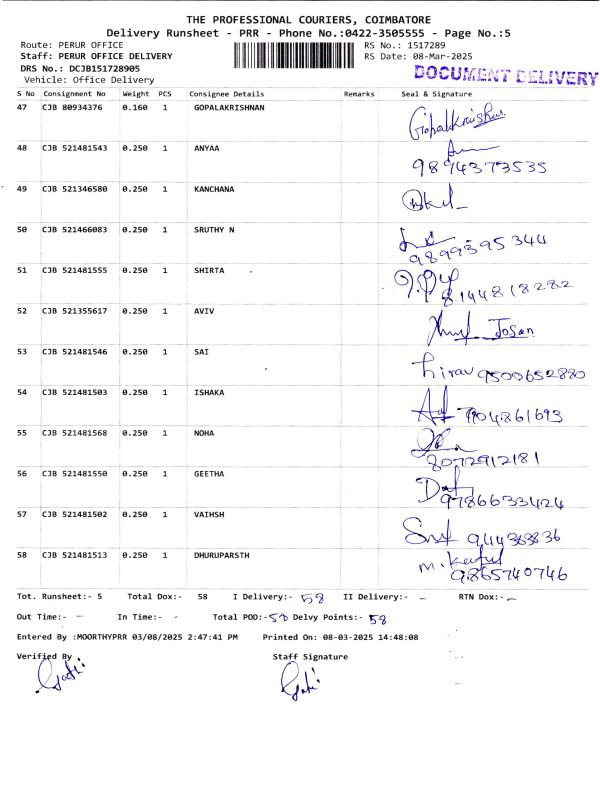 THE PROFESSIONAL COURIERS, COIMBATORE
Delivery Runsheet - PRR - Phone No.:0422-3505555 - Page No.:5
Route: PERUR OFFICE RS No.: 1517289
Staff: PERUR OFFICE DELIVERY RS Date: 08-Mar-2025
DRS No.: DCJB151728905 DOCUMENT DELIVERY
Vehicle: Office Delivery
S No Consignment No Weight PCS Consignee Details Remarks Seal & Signature
47 CJB 80934376 0.160 1 GOPALAKRISHNAN Gopalakrishnan
48 CJB 521481543 0.250 1 ANYAA
9894373535
49 CJB 521346580 0.250 1 KANCHANA
50 CJB 521466083 0.250 1 SRUTHY N
9899395344
51 CJB 521481555 0.250 1 SHIRTA
8144818282
52 CJB 521355617 0.250 1 AVIV Josan
53 CJB 521481546 0.250 1 SAI
hirav 9500652880
54 CJB 521481503 0.250 1 ISHAKA
7904861693
55 CJB 521481568 0.250 1 NOHA
8072912181
56 CJB 521481550 0.250 1 GEETHA
9786633424
57 CJB 521481502 0.250 1 VAIHSH
58 CJB 521481513 0.250 1 DHURUPARSTH
9865740746
Tot. Runsheet:- 5 Total Dox:- 58 I Delivery:- 58 II Delivery:- - RTN Dox:- -
Out Time:- - In Time:- - Total POD:- 58 Delvy Points:- 58
Entered By :MOORTHYPRR 03/08/2025 2:47:41 PM Printed On: 08-03-2025 14:48:08
Verified By Staff Signature